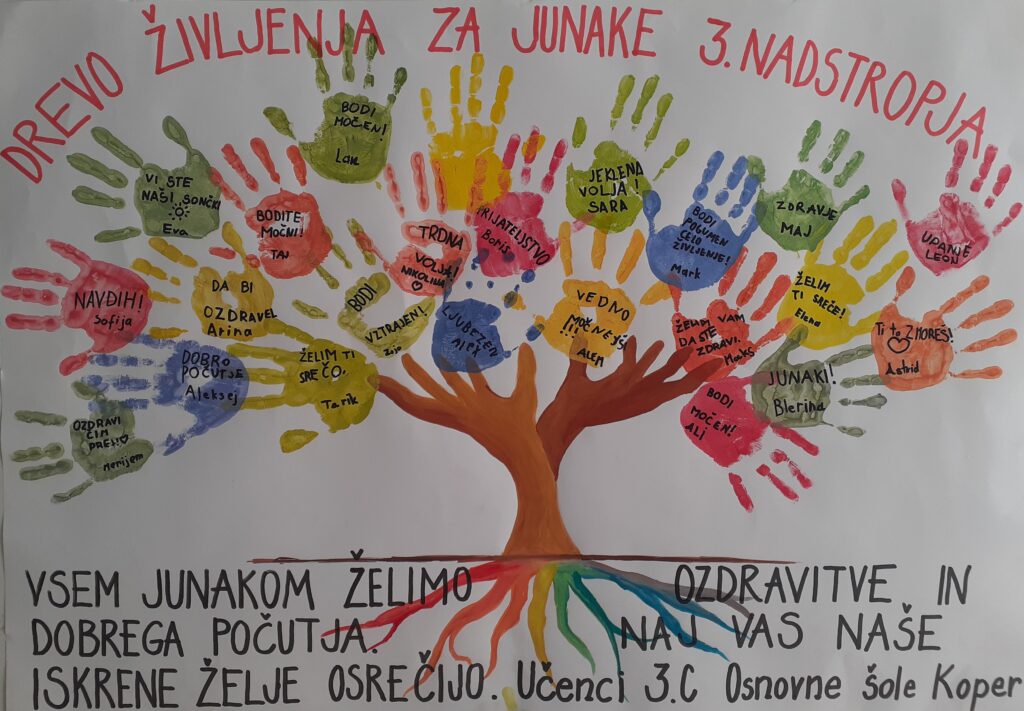 DREVO ŽIVLJENJA ZA JUNAKE 3. NADSTROPJA
BODI
MOČEN!
Lan
VI STE
NAŠI SONČKI
Eva
BODITE
MOČNI!
TAJ
TRDNA
VOLJA!
NIKOLINA
PRIJATELJSTVO
Boris
JEKLENA
VOLJA!
SARA
BODI
POGUMEN
CELO
ŽIVLJENJE!
Mark
ZDRAVJE
MAJ
UPANJE
LEON
NAVDIH!
Sofija
DA BI
OZDRAVEL
Arina
BODI
VZTRAJEN!
LJUBEZEN
VEDNO
MOČNEJŠI
!!!
ALEM
ŽELIM VAM
DA STE
ZDRAVI.
Maks
ŽELIM
TI SREČE!
Elena
Ti to ZMOREŠ!
Astrid
DOBRO
POČUTJE
Aleksej
ŽELIM TI
SREČO.
Tarik
JUNAKI!
Blerina
BODI
MOČEN!
ALI
OZDRAVI
ČIM
PREJ!
merijem
VSEM JUNAKOM ŽELIMO OZDRAVITVE IN
DOBREGA POČUTJA. NAJ VAS NAŠE
ISKRENE ŽELJE OSREČIJO. Učenci 3.C Osnovne šole Koper